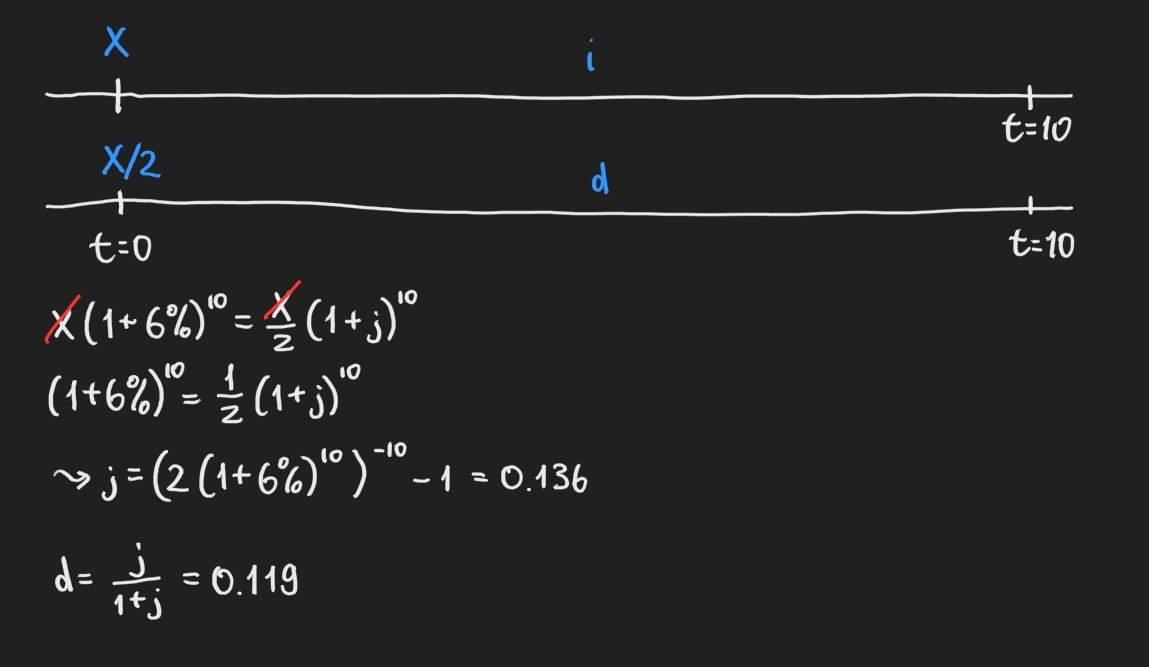 X
i
t=10
X/2
d
t=0
t=10
X(1+6%)¹⁰ = X/2 (1+j)¹⁰
(1+6%)¹⁰ = 1/2 (1+j)¹⁰
⇝ j = (2(1+6%)¹⁰)⁻¹⁰ - 1 = 0.136
d = j/(1+j) = 0.119